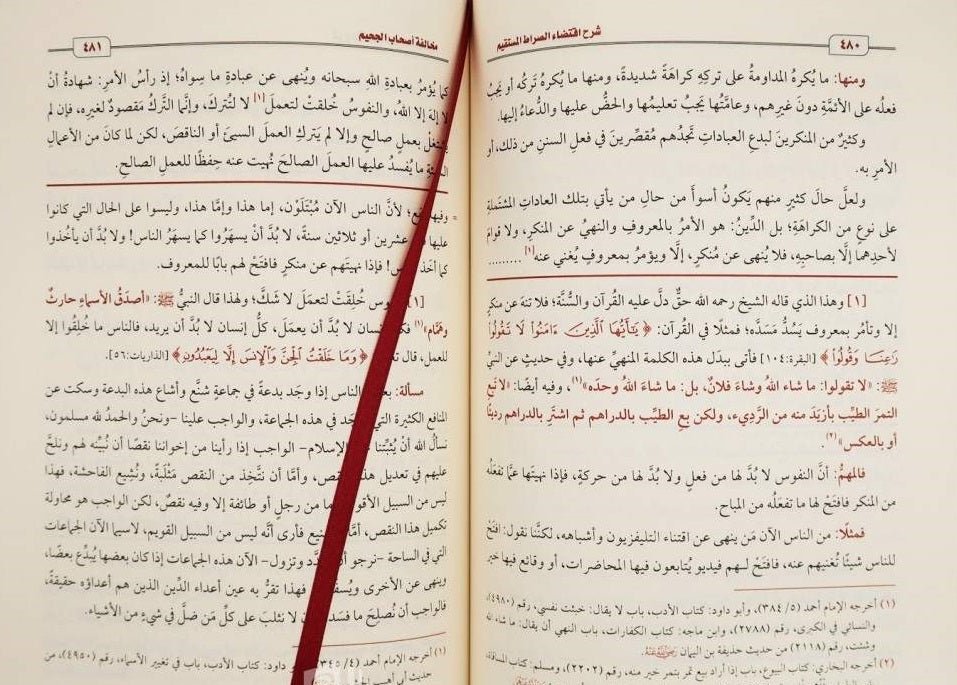 ٤٨٠
شرح اقتضاء الصراط المستقيم
ومنها: ما يُكرهُ المداومةُ على تركِهِ كراهَةً شديدةً، ومنها ما يُكرَهُ تركُه أو يَجبُ
فعلُه على الأئمَّةِ دونَ غيرِهم، وعامَّتُها يَجِبُ تعليمُها والحضُّ عليها والدُّعاءُ إليها.
وكثيرٌ من المنكرينَ لبدعِ العباداتِ تَجدُهم مُقصِّرينَ في فعلِ السننِ من ذلك، أو
الأمرِ به.
ولعلَّ حالَ كثيرٍ منهم يَكونُ أسوأَ من حالِ من يأتي بتلك العاداتِ المشتملةِ
على نوعٍ من الكراهَةِ؛ بل الدِّينُ: هو الأمرُ بالمعروفِ والنهيُ عن المنكرِ، ولا قوامَ
لأحدِهما إلَّا بصاحبِهِ، فلا يُنهى عن مُنكرٍ، إلَّا ويؤمرُ بمعروفٍ يُغني عنه[١] .........
[١] وهذا الذي قاله الشيخ رحمه الله حقٌّ دلَّ عليه القُرآن والسُّنَّة؛ فلا تنهَ عن منكرٍ
إلا وتأمُر بمعروف يَسُدُّ مَسَدَّه؛ فمثلًا في القُرآن: ﴿يَٰٓأَيُّهَا ٱلَّذِينَ ءَامَنُوا۟ لَا تَقُولُوا۟
رَٰعِنَا وَقُولُوا۟﴾ [البقرة:١٠٤] فأتى ببدَل هذه الكلمة المنهيِّ عنها، وفي حديثٍ عن النبيِّ
ﷺ: «لا تقولوا: ما شاء اللهُ وشاءَ فلانٌ، بل: ما شاءَ اللهُ وحدَه»(١)، وفيه أيضًا: «لا تَبع
التمرَ الطيِّبَ بأزيَدَ منه من الرَّديء، ولكن بعِ الطيِّبَ بالدراهم ثم اشترِ بالدراهم رديئًا
أو بالعكس»(٢).
فالمهمُّ: أنَّ النفوس لا بُدَّ لها من فعلٍ ولا بُدَّ لها من حركةٍ، فإذا نهيتَها عمَّا تفعَلُه
من المنكر فافتَحْ لها ما تفعلُه من المباح.
فمثلًا: من الناس الآن مَن يَنهى عن اقتناء التليفزيون وأشباهه، لكنَّنا نقول: افتَحْ
للناس شيئًا تُغنيهم عنه، فافتَحْ لـهم فيديو يُتابعون فيها المحاضرات، أو وقائع فيها خير
(١) أخرجه الإمام أحمد (٥/ ٣٨٤)، وأبو داود: كتاب الأدب، باب لا يقال: خبثت نفسي، رقم (٤٩٨٠)،
والنسائي في الكبرى، رقم (٢٧٨٨)، وابن ماجه: كتاب الكفارات، باب النهي أن يقال: ما شاء الله
وشئت، رقم (٢١١٨) من حديث حذيفة بن اليمان رضي الله عنه.
(٢) أخرجه البخاري: كتاب البيوع، باب إذا أراد بيع تمر بتمر خير منه، رقم (٢٢٠٢)، ومسلم: كتاب المساقاة،
مخالفة أصحاب الجحيم
٤٨١
كما يُؤمرُ بعبادةِ اللهِ سبحانه ويُنهى عن عبادةِ ما سِواهُ؛ إذ رأسُ الأمرِ: شهادةُ أنْ
لا إلهَ إلا اللهُ، والنفوسُ خُلقتْ لتعملَ[١] لا لتُتركَ، وإنَّما التَّركُ مَقصودٌ لغيرِه، فإن لم
يشتغلْ بعملٍ صالحٍ وإلا لم يَتركِ العملَ السيئَ أو الناقصَ، لكن لما كانَ من الأعمالِ
السيِّئةِ ما يُفسدُ عليها العملَ الصالحَ نُهيت عنه حِفظًا للعملِ الصالحِ.
= وفيها نفع؛ لأنَّ الناس الآن مُبْتَلَوْن، إما هذا وإمَّا هذا، وليسوا على الحال التي كانوا
عليها عشرين أو ثلاثين سنةً، لا بُدَّ أنْ يسهَرُوا كما يسهَرُ الناس! ولا بُدَّ أن يأخُذوا
كما أخذ الناس! فإذا نهيتَهم عن منكرٍ فافتَحْ لهم بابًا للمعروف.
[١] النفوس خُلِقَتْ لتعمَلَ لا شكَّ؛ ولهذا قال النبيُّ ﷺ: «أصدَقُ الأسماءِ حارثٌ
وهَمَّام»(١) فكلُّ إنسان لا بُدَّ أن يعمَل، كلُّ إنسان لا بُدَّ أن يريد، فالناس ما خُلِقُوا إلا
للعمل، قال تعالى: ﴿وَمَا خَلَقْتُ ٱلْجِنَّ وَٱلْإِنسَ إِلَّا لِيَعْبُدُونِ﴾ [الذاريات:٥٦].
مسألة: بعض الناس إذا وجَد بدعةً في جماعةٍ شنَّع وأشاع هذه البدعة وسكت عن
المنافع الكثيرة التي تُوجَد في هذه الجماعة، والواجب علينا -ونحنُ والحمدُ لله مسلمون،
نسألُ اللهَ أنْ يُثبِّتنا على الإسلام- الواجب إذا رأينا من إخواننا نقصًا أن نُبيِّنه لهم ونلحَّ
عليهم في تعديل هذا النقص، وأمَّا أن نتَّخِذ من النقص مَثْلَبةً، ونُشيع الفاحشة، فهذا
ليس من السبيل الأقوم، ما من رجلٍ أو طائفة إلا وفيه نقصٌ، لكن الواجب هو محاولة
تكميل هذا النقص، أمَّا التشنيع فأرى أنَّه ليس من السبيل القويم، لاسيما الآن الجماعات
التي في الساحة -نرجو أن تزول- الآن هذه الجماعات إذا كان بعضها يُبدِّع بعضًا،
وينهى عن الأخرى فهذا تقرُّ به عين أعداء الدِّين الذين هم أعداؤه حقيقةً،
فالواجب أن نُصلِحَ ما فسَد، لا نَثلبَ على كلِّ مَن ضلَّ في شيءٍ من الأشياء.
(١) أخرجه الإمام أحمد (٤/ ٣٤٥)، وأبو داود: كتاب الأدب، باب في تغيير الأسماء، رقم (٤٩٥٠)، من